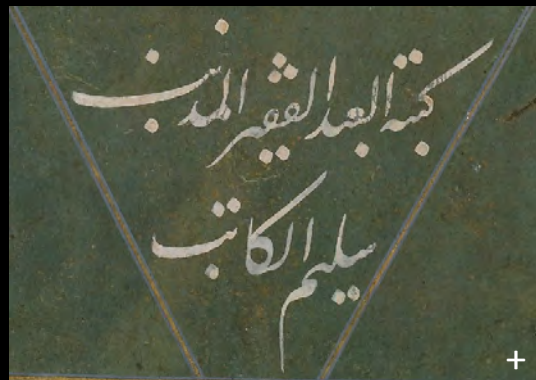 كتبه العبد الفقير المذنب
سليم الكاتب